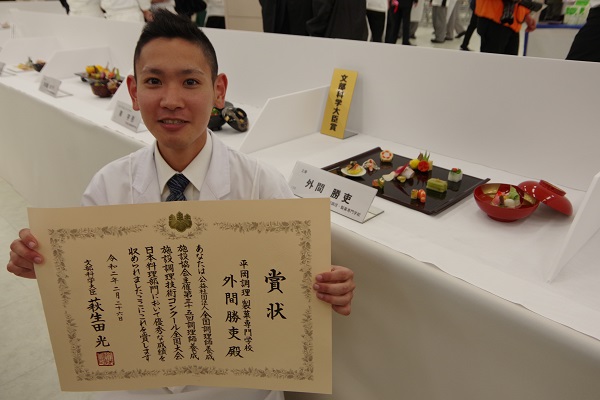 文部科学大臣賞
外間 勝吏
賞状
平岡調理・製菓専門学校
外間 勝吏 殿
あなたは公益社団法人全国調理師養成
施設協会主催第三十五回調理師養成
施設調理技術コンクール全国大会
日本料理部門において優秀な成績を
収められましたここにこれを賞します
令和二年二月二十六日
文部科学大臣 萩生田 光一